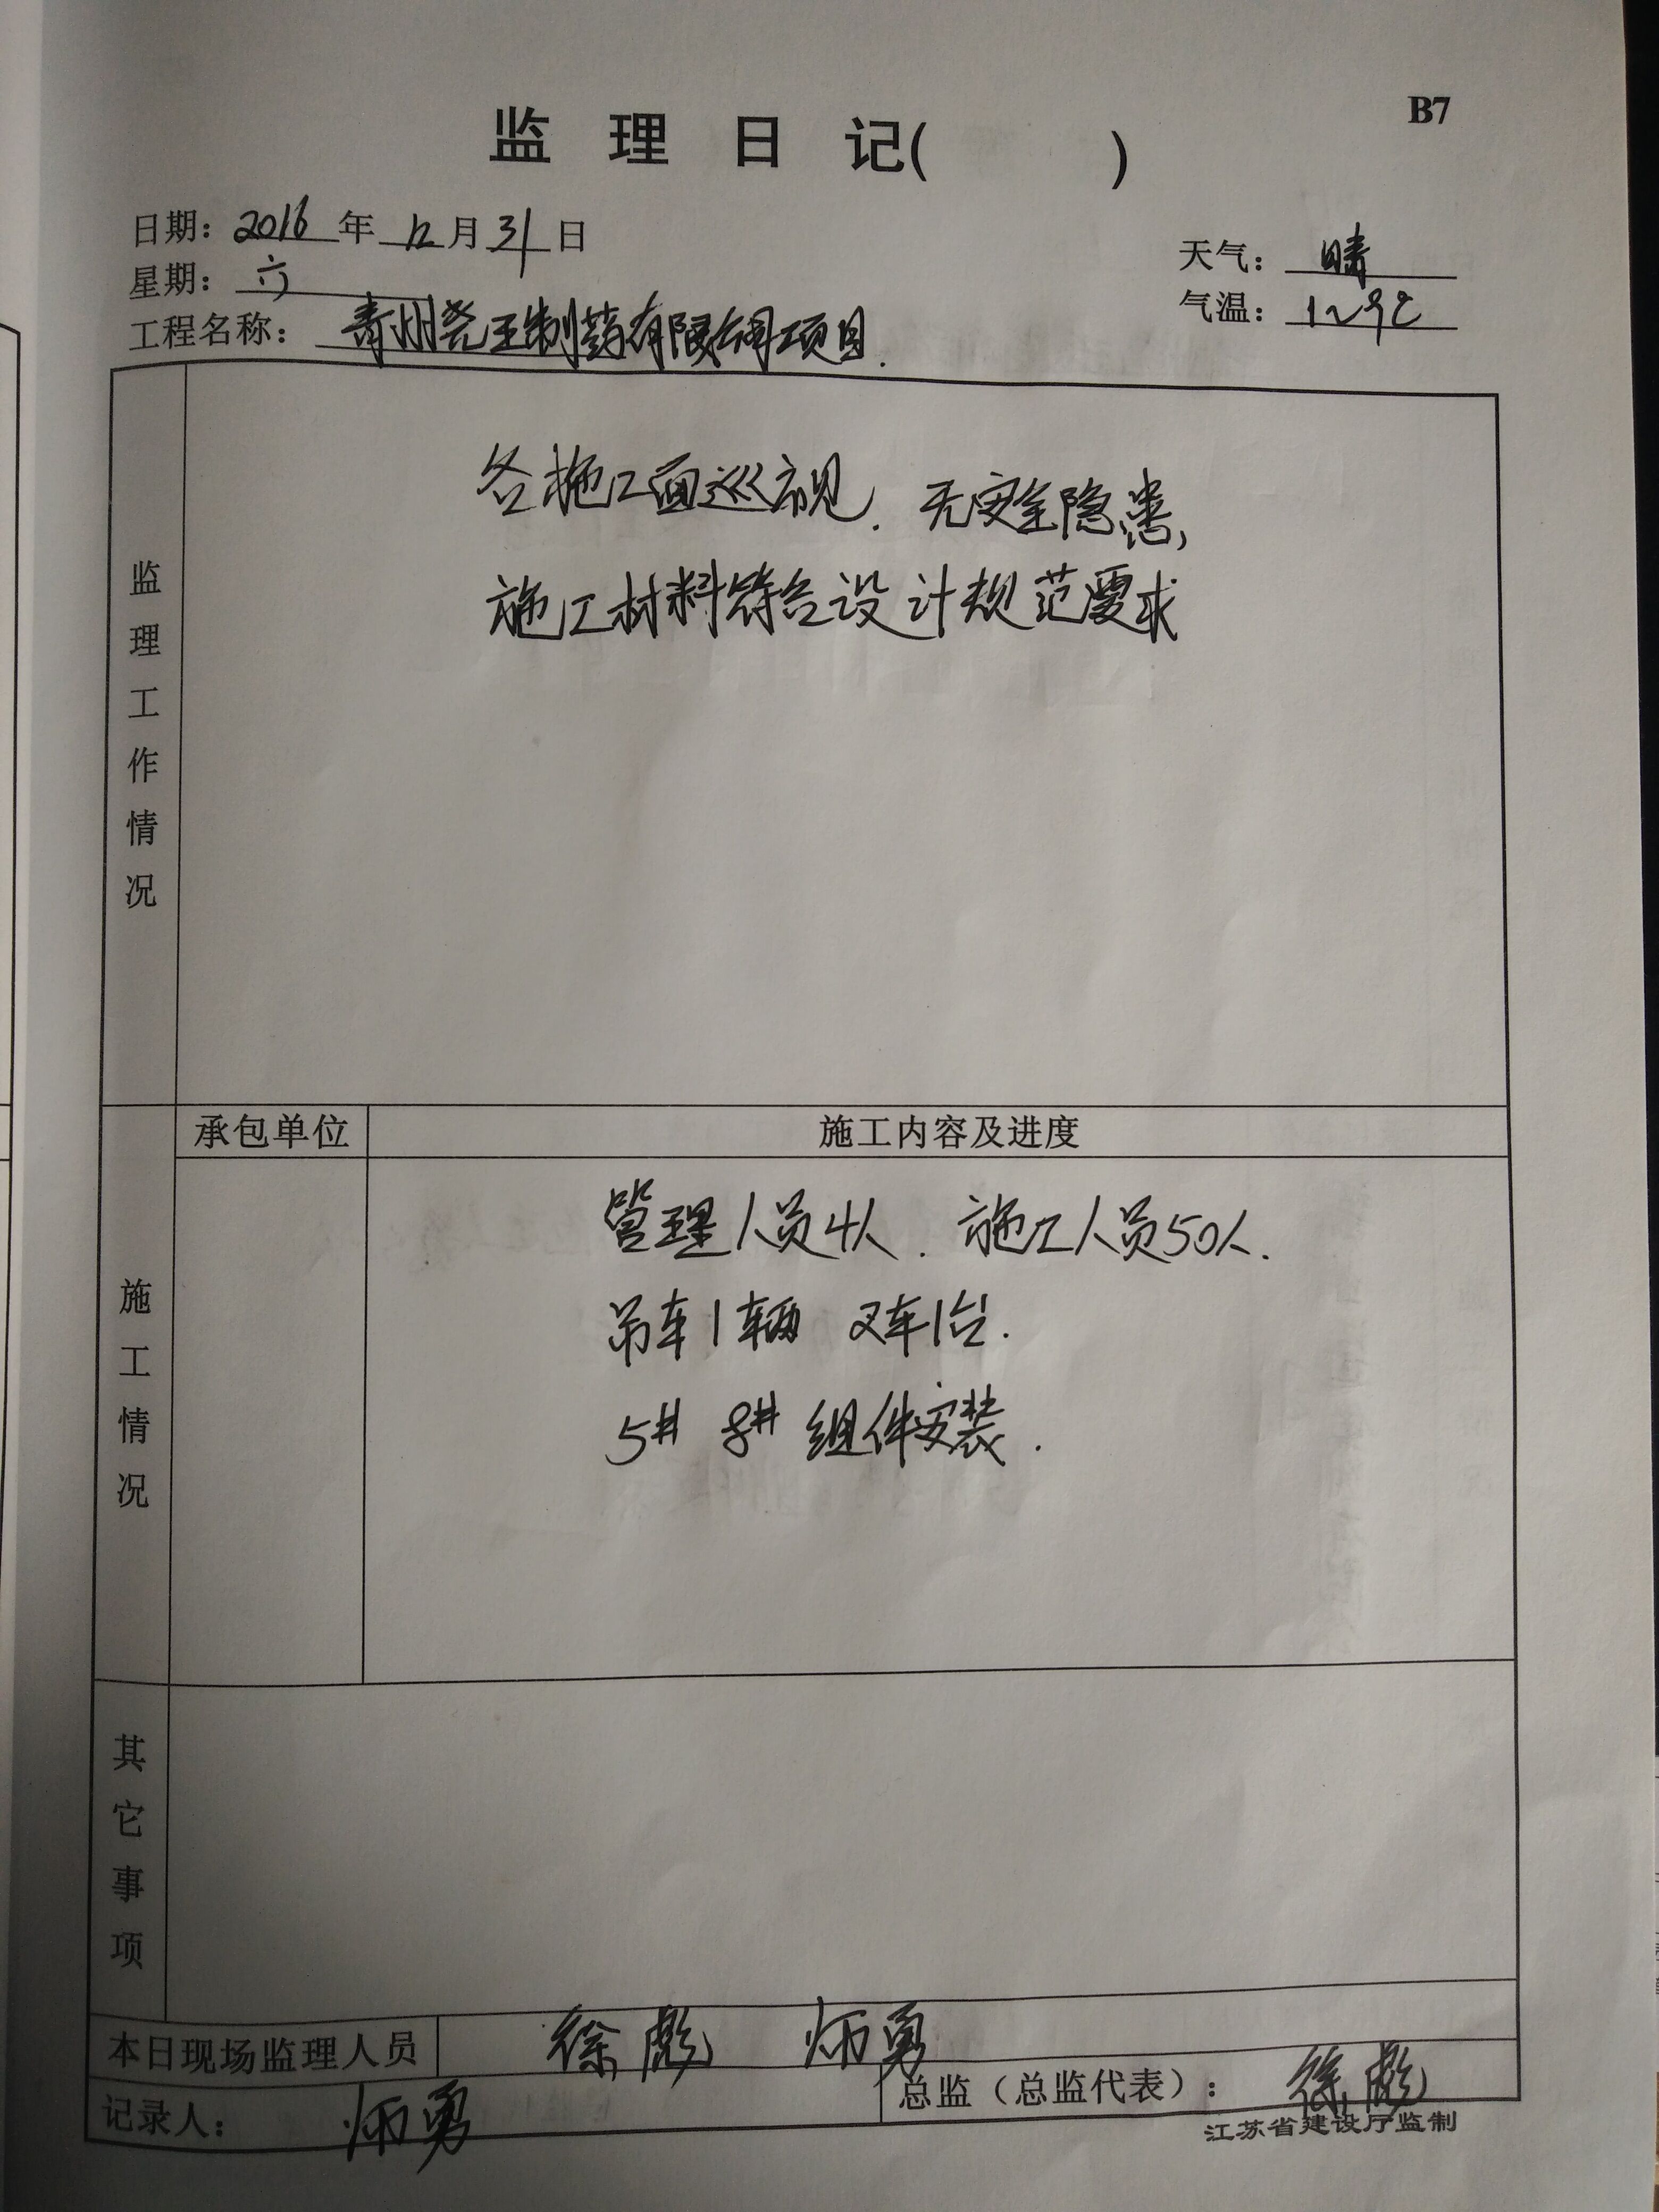 B7
监理日记(　　)
日期：2016年12月31日
天气：晴
星期：六
气温：1~9℃
工程名称：青州尧王制药有限公司项目.
监理工作情况
各施工面巡视. 无安全隐患,
施工材料符合设计规范要求
承包单位 施工内容及进度
施工情况
管理人员4人. 施工人员50人.
吊车1辆 叉车1台.
5# 8# 组件安装.
其它事项
本日现场监理人员 徐彪 勇
记录人： 勇
总监（总监代表）： 徐彪
江苏省建设厅监制